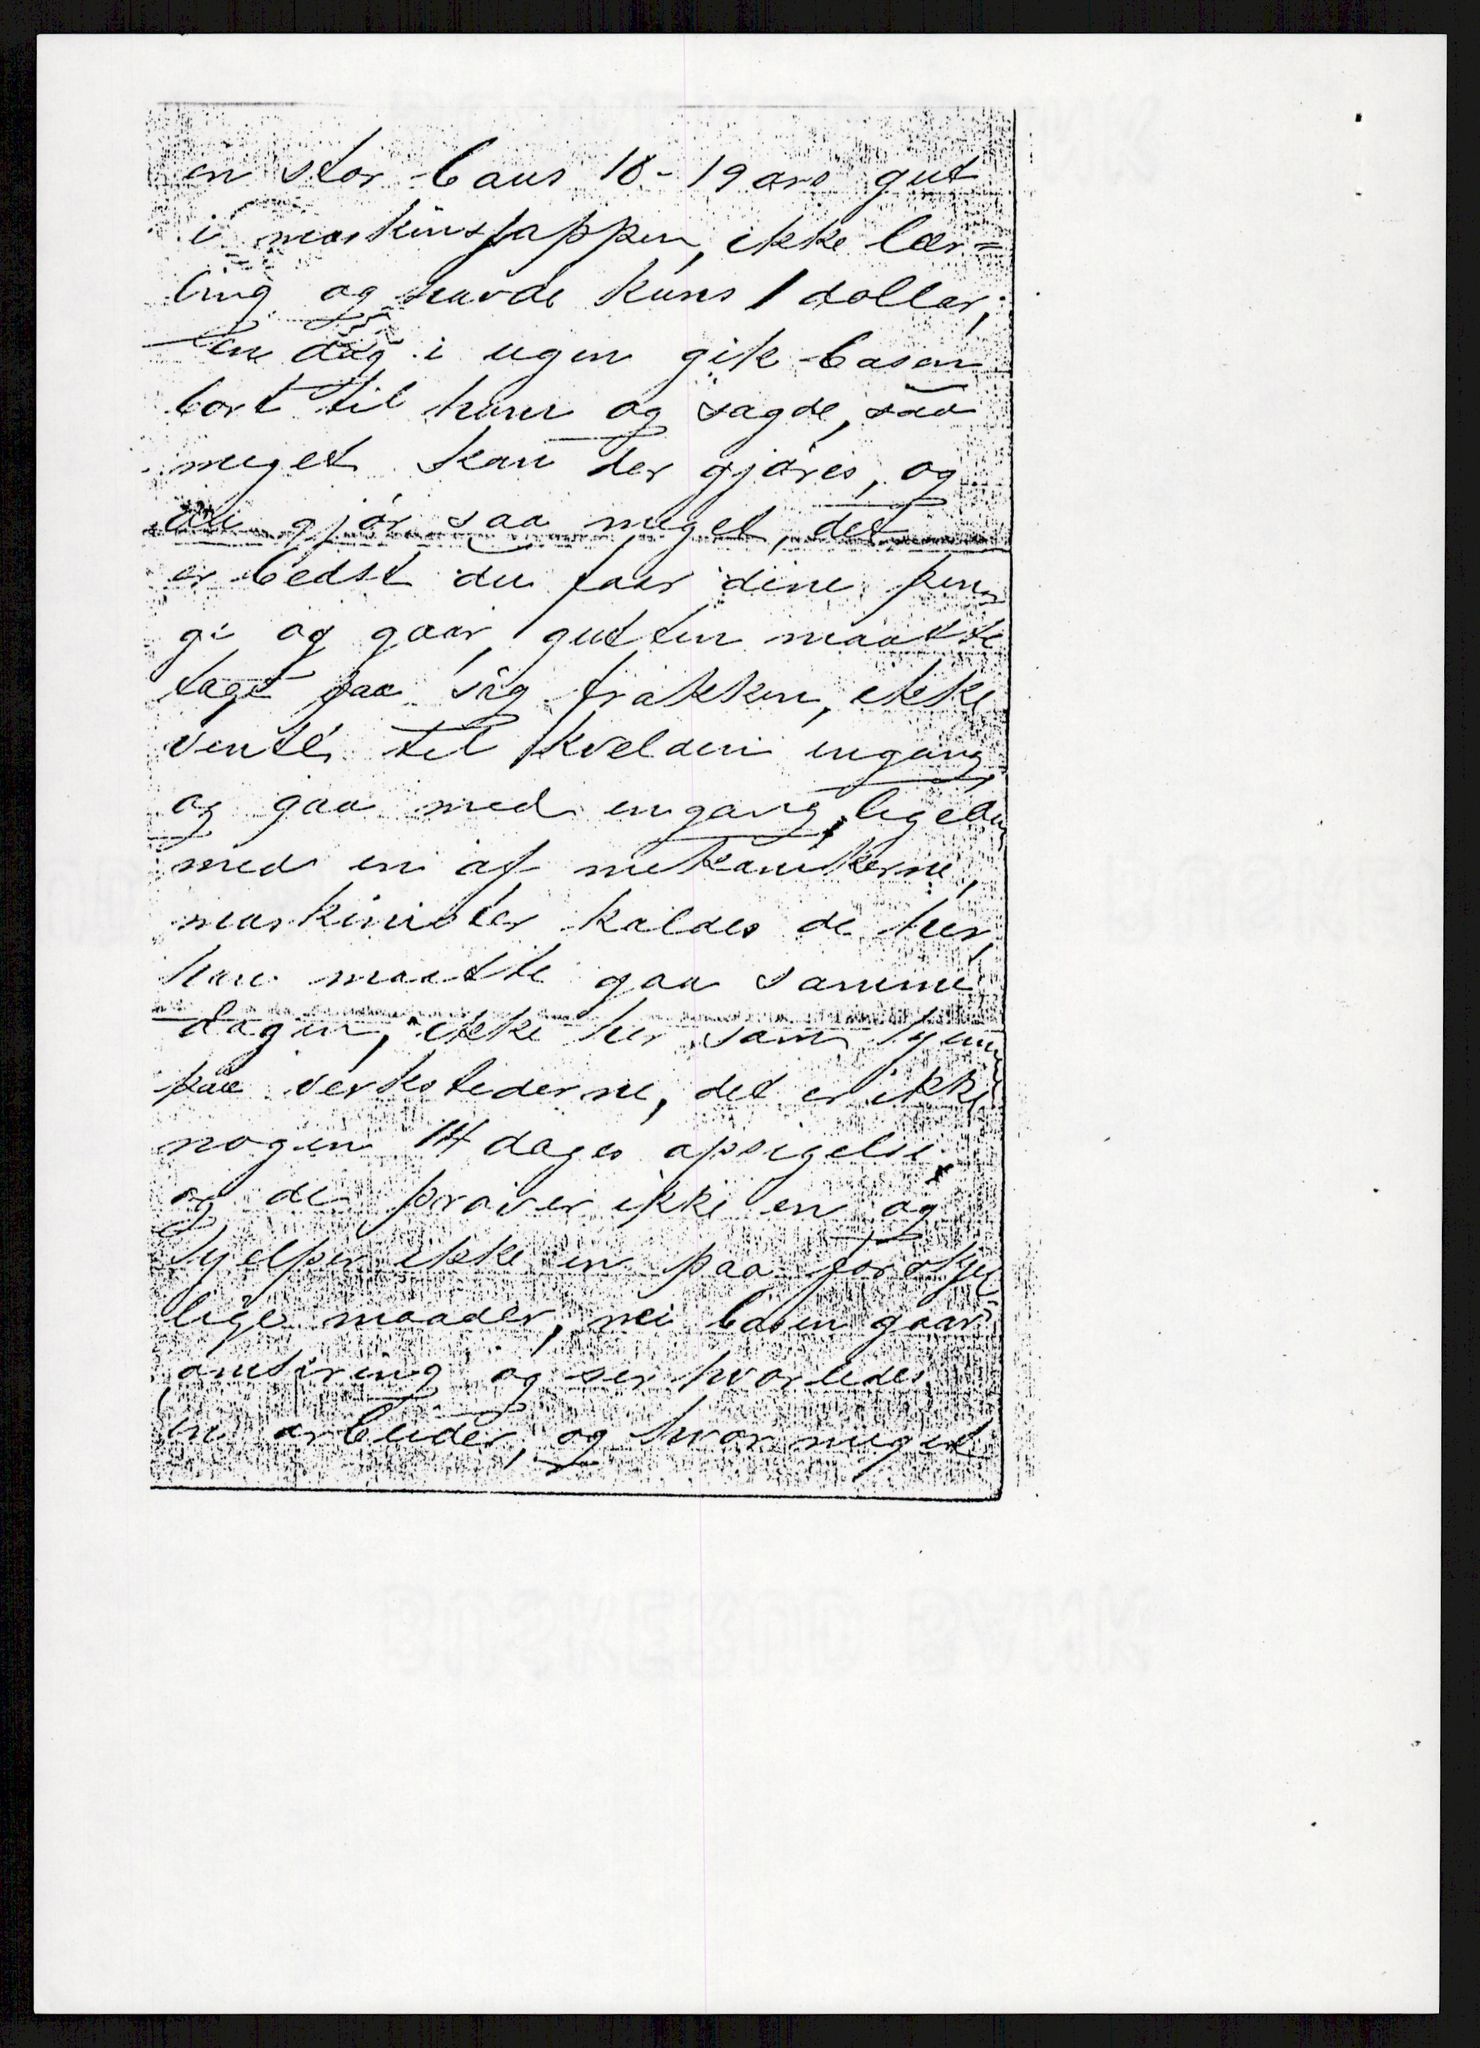 en stor baus 18-19 ars gut
i maskinsjappen, ikke lær=
ling og havde kuns 1 dollar,
en dag i ugen gik basen
bort til ham og sagde, saa
meget kan der gjøres, og
du gjør saa meget, det
er bedst du faar dine pen
ge og gaar, gutten maatte
tage paa sig frakken, ikke
vente til kvelden engang,
og gaa med engang, ligeda
med en af mekanikerne,
maskinister kaldes de her,
han maatte gaa samme
dagen, ikke her som hjemme
paa verkstederne, det er ikke
nogen 14 dages opsigelse,
og de prøver ikke en og
hjelper ikke en paa forskjel
lige maader, nei basen gaar
omkring og ser hvorledes
en arbeider, og hvor meget